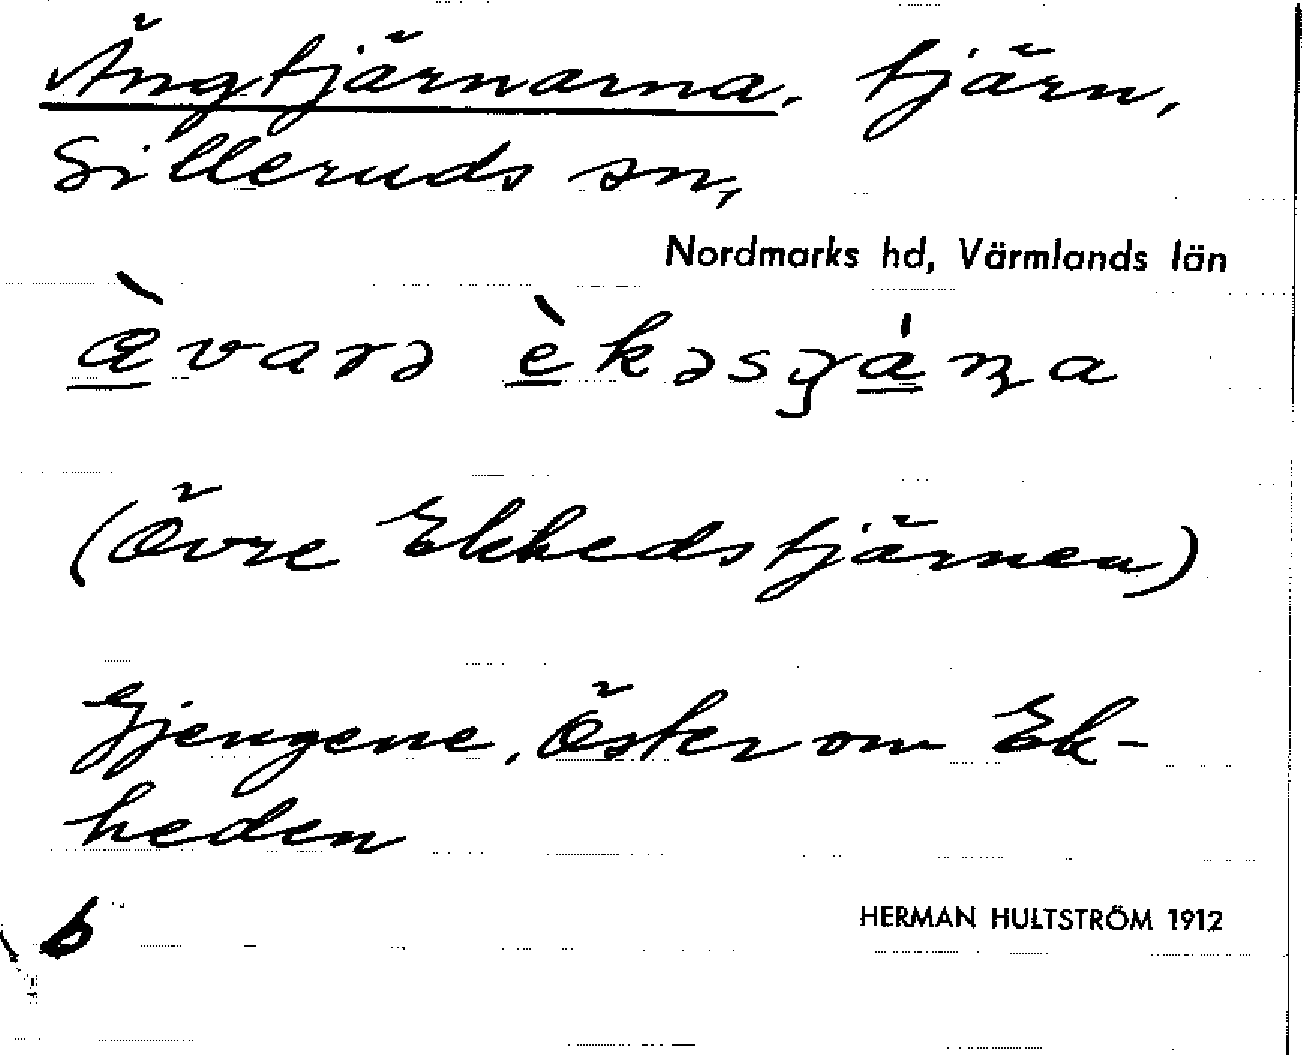 Ängtjärnarna, tjärn,
Silleruds sn,
Nordmarks hd, Värmlands län
(Övre Ekhedstjärnen)
Gjengene, Öster om Ek-
heden
b
HERMAN HULTSTRÖM 1912